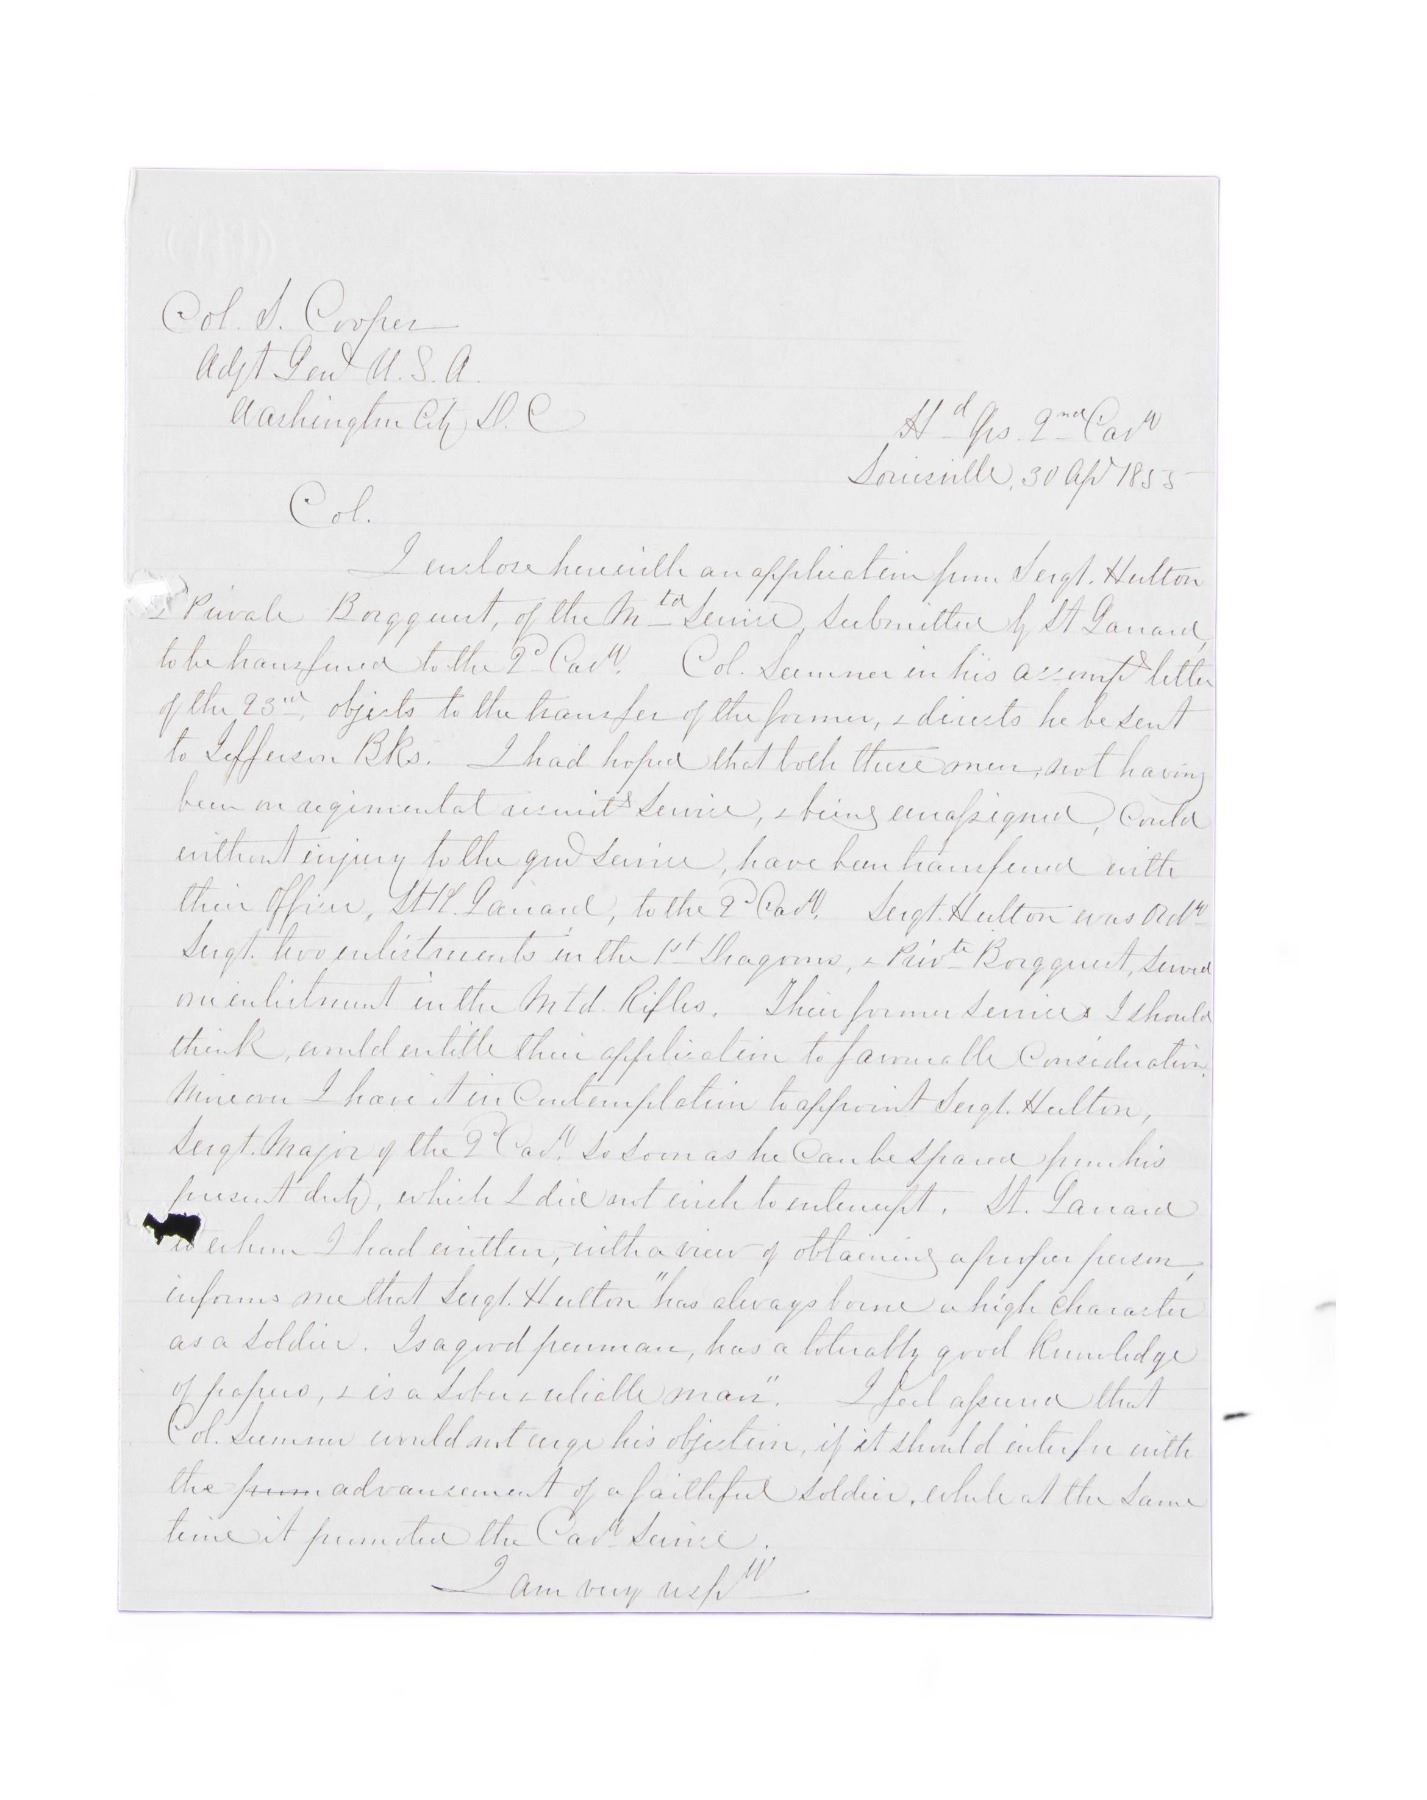 Col. S. Cooper
Adjt Genl U. S. A.
Washington City D. C
Hd Qrs. 2nd Cavy
Louisville, 30 Apl 1855
Col.
I enclose herewith an application from Sergt. Hulton
& Private Borgquest, of the Mtd Service, submitted by Lt
to be transferred to the 2d Cavy. Col. Sumner in his accompd letter
of the 23rd, objects to the transfer of the former, & directs he be sent
to Jefferson Bks. I had hoped that both these men, not having
been on regimental recruitg service, & being unassigned, could
without injury to the genl service, have been transferred with
their Officer, Lt to the 2d Cavy. Sergt. Hulton was Ordy
Sergt. two enlistments in the 1st Dragoons, & Privte Borgquest, served
one enlistment in the Mtd. Rifles. Their former services I should
think, would entitle their application to favourable consideration.
Moreover I have it in contemplation to appoint Sergt. Hulton,
Sergt. Major of the 2d Cavy. so soon as he can be spared from his
present duty, which I did not wish to interrupt. Lt.
to whom I had written, with a view of obtaining a proper person,
informs me that Sergt. Hulton "has always borne a high character
as a soldier. Is a good penman, has a tolerably good knowledge
of papers, & is a sober & reliable man". I feel assured that
Col. Sumner would not urge his objection, if it should interfere with
the from advancement of a faithful soldier, while at the same
time it promoted the Cavy Service.
I am very respy